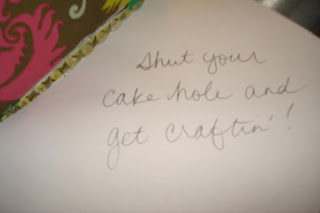 Shut your
cake hole and
get craftin'!